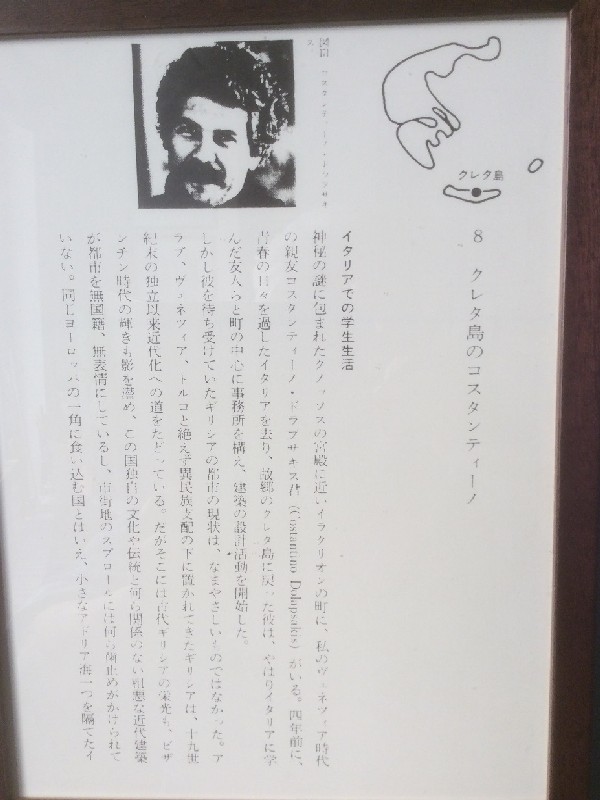 クレタ島
8 クレタ島のコスタンティーノ
イタリアでの学生生活
神秘の謎に包まれたクノッソスの宮殿に近いイラクリオンの町に、私のヴェネツィア時代
の親友コスタンティーノ・ドラプサキス君 がいる。四年前に、
青春の日々を過したイタリアを去り、故郷のクレタ島に戻った彼は、やはりイタリアに学
んだ友人らと町の中心に事務所を構え、建築の設計活動を開始した。
しかし彼を待ち受けていたギリシアの都市の現状は、なまやさしいものではなかった。ア
ラブ、ヴェネツィア、トルコと絶えず異民族支配の下に置かれてきたギリシアは、十九世
紀末の独立以来近代化への道をたどっている。だがそこには古代ギリシアの栄光も、ビザ
ンチン時代の輝きも影を潜め、この国独自の文化や伝統と何ら関係のない粗悪な近代建築
が都市を無国籍、無表情にしているし、市街地のスプロールには何ら歯止めがかけられて
いない。同じヨーロッパの一角に食い込む国とはいえ、小さなアドリア海一つを隔てたイ